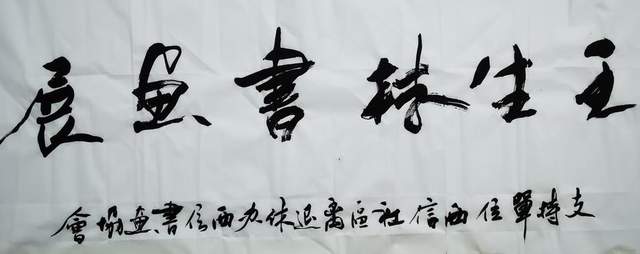 王生林書畫展
支持單位西信社區离退休办西信書畫協會